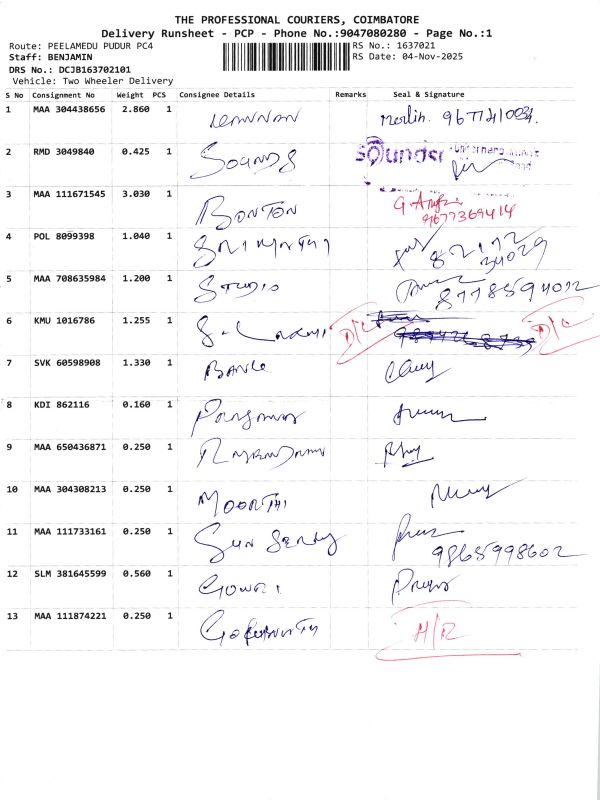 THE PROFESSIONAL COURIERS, COIMBATORE
Delivery Runsheet - PCP - Phone No.:9047080280 - Page No.:1
Route: PEELAMEDU PUDUR PC4 RS No.: 1637021
Staff: BENJAMIN RS Date: 04-Nov-2025
DRS No.: DCJB163702101
Vehicle: Two Wheeler Delivery
S No Consignment No Weight PCS Consignee Details Remarks Seal & Signature
1 MAA 304438656 2.860 1 KANNAN Merlin.
2 RMD 3049840 0.425 1 SOUNDS sounder
3 MAA 111671545 3.030 1 BONTON
9677369414
4 POL 8099398 1.040 1
5 MAA 708635984 1.200 1 STUDIO
8778594012
6 KMU 1016786 1.255 1 D/C D/C
7 SVK 60598908 1.330 1
8 KDI 862116 0.160 1
9 MAA 650436871 0.250 1
10 MAA 304308213 0.250 1 MOORTHI
11 MAA 111733161 0.250 1 SUN
9865998602
12 SLM 381645599 0.560 1 GOWRI
13 MAA 111874221 0.250 1